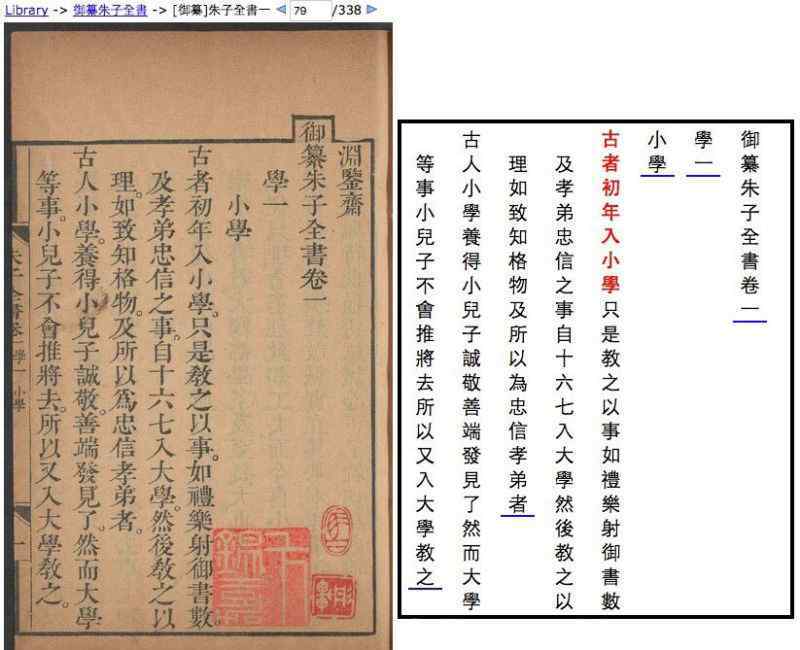 Library -> 御纂朱子全書 -> [御纂]朱子全書一 79 /338
淵鑒齋
御纂朱子全書卷一
學一
小學
古者初年入小學。只是敎之以事。如禮樂射御書數
及孝弟忠信之事。自十六七入大學。然後敎之以
理。如致知格物。及所以爲忠信孝弟者。
古人小學。養得小兒子誠敬。善端發見了。然而大學
等事。小兒子不會推將去。所以又入大學敎之。
朱子全書卷一 學一 小學
一
御纂朱子全書卷一
學一
小學
古者初年入小學只是教之以事如禮樂射御書數
及孝弟忠信之事自十六七入大學然後教之以
理如致知格物及所以為忠信孝弟者
古人小學養得小兒子誠敬善端發見了然而大學
等事小兒子不會推將去所以又入大學教之